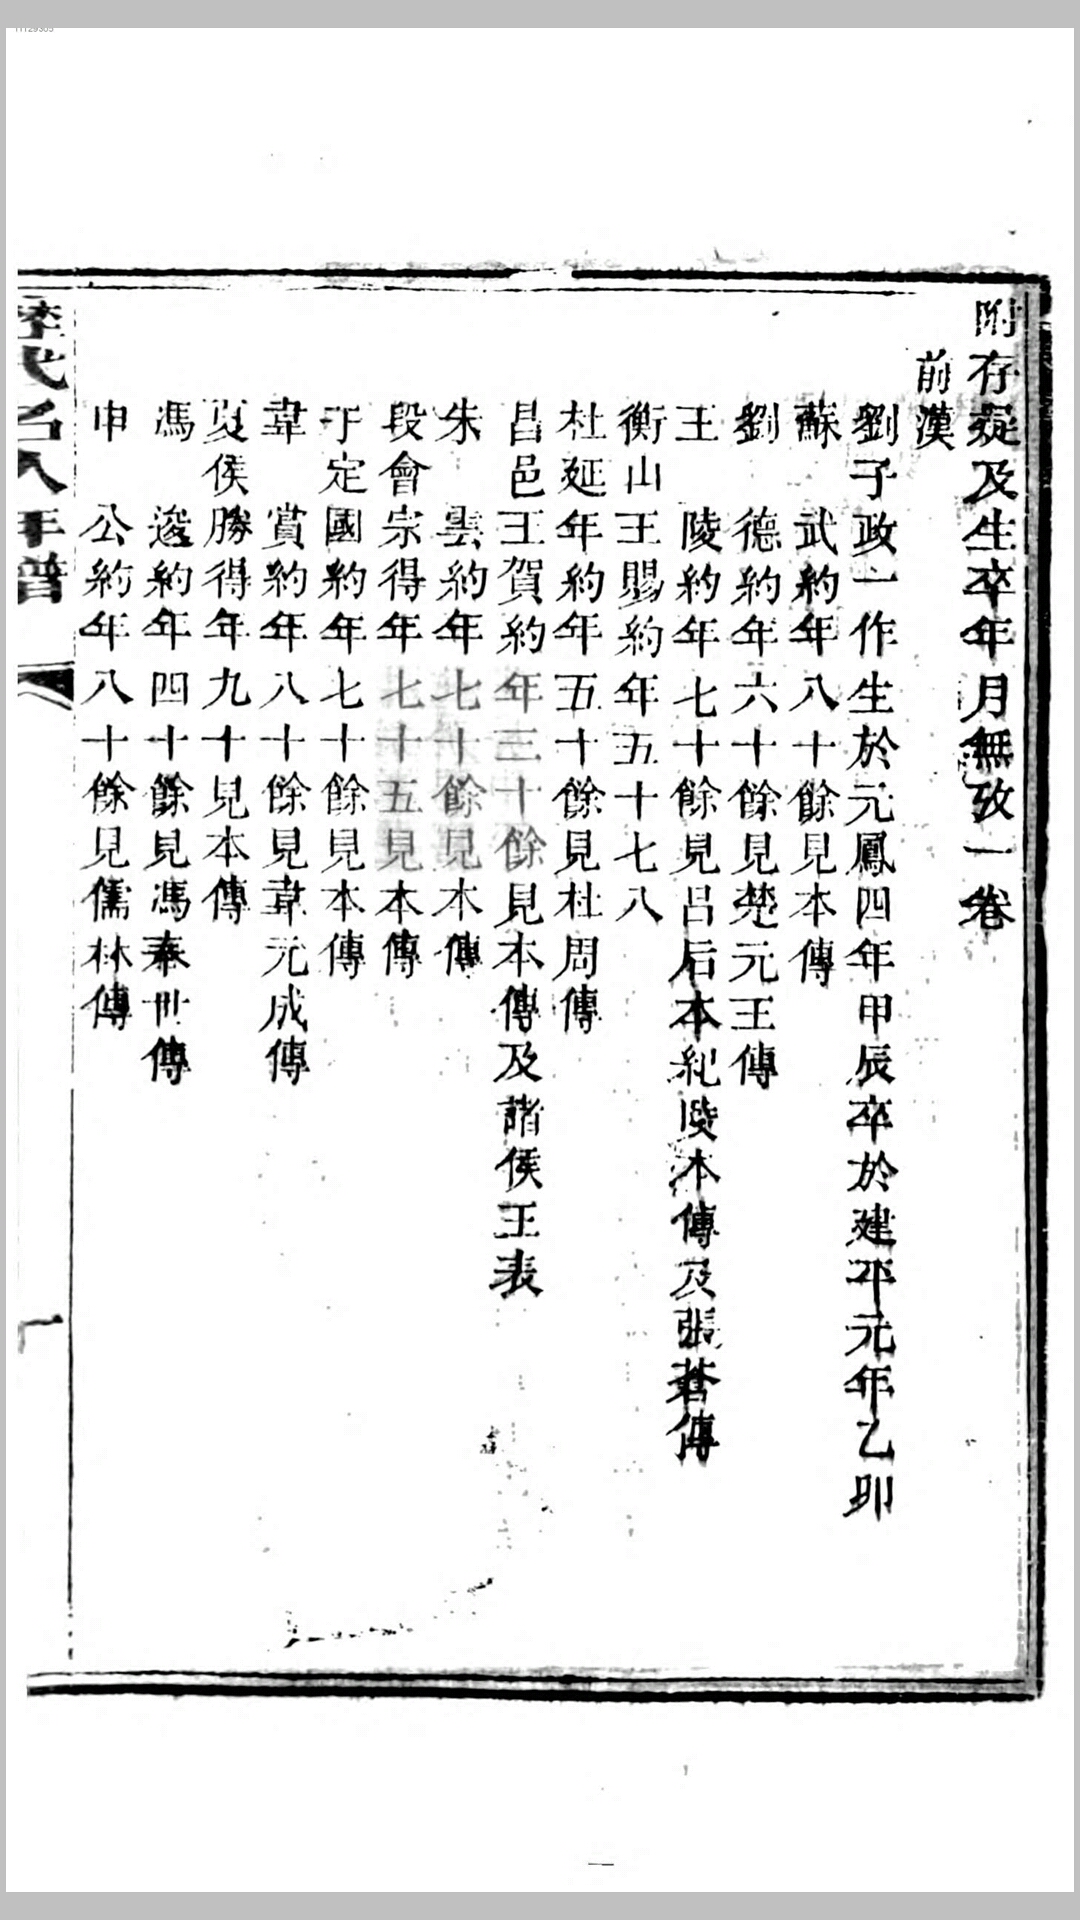 附存疑及生卒年月無攷一卷
前漢
劉子政一作生於元鳳四年甲辰卒於建平元年乙卯
蘇　武約年八十餘見本傳
劉　德約年六十餘見楚元王傳
王　陵約年七十餘見呂后本紀陵本傳及張蒼傳
衡山王賜約年五十七八
杜延年約年五十餘見杜周傳
昌邑王賀約年三十餘見本傳及諸侯王表
朱　雲約年七十餘見本傳
段會宗得年七十五見本傳
于定國約年七十餘見本傳
韋　賞約年八十餘見韋元成傳
夏侯勝得年九十見本傳
馮　逡約年四十餘見馮奉世傳
申　公約年八十餘見儒林傳
歷代名人年譜
一
一